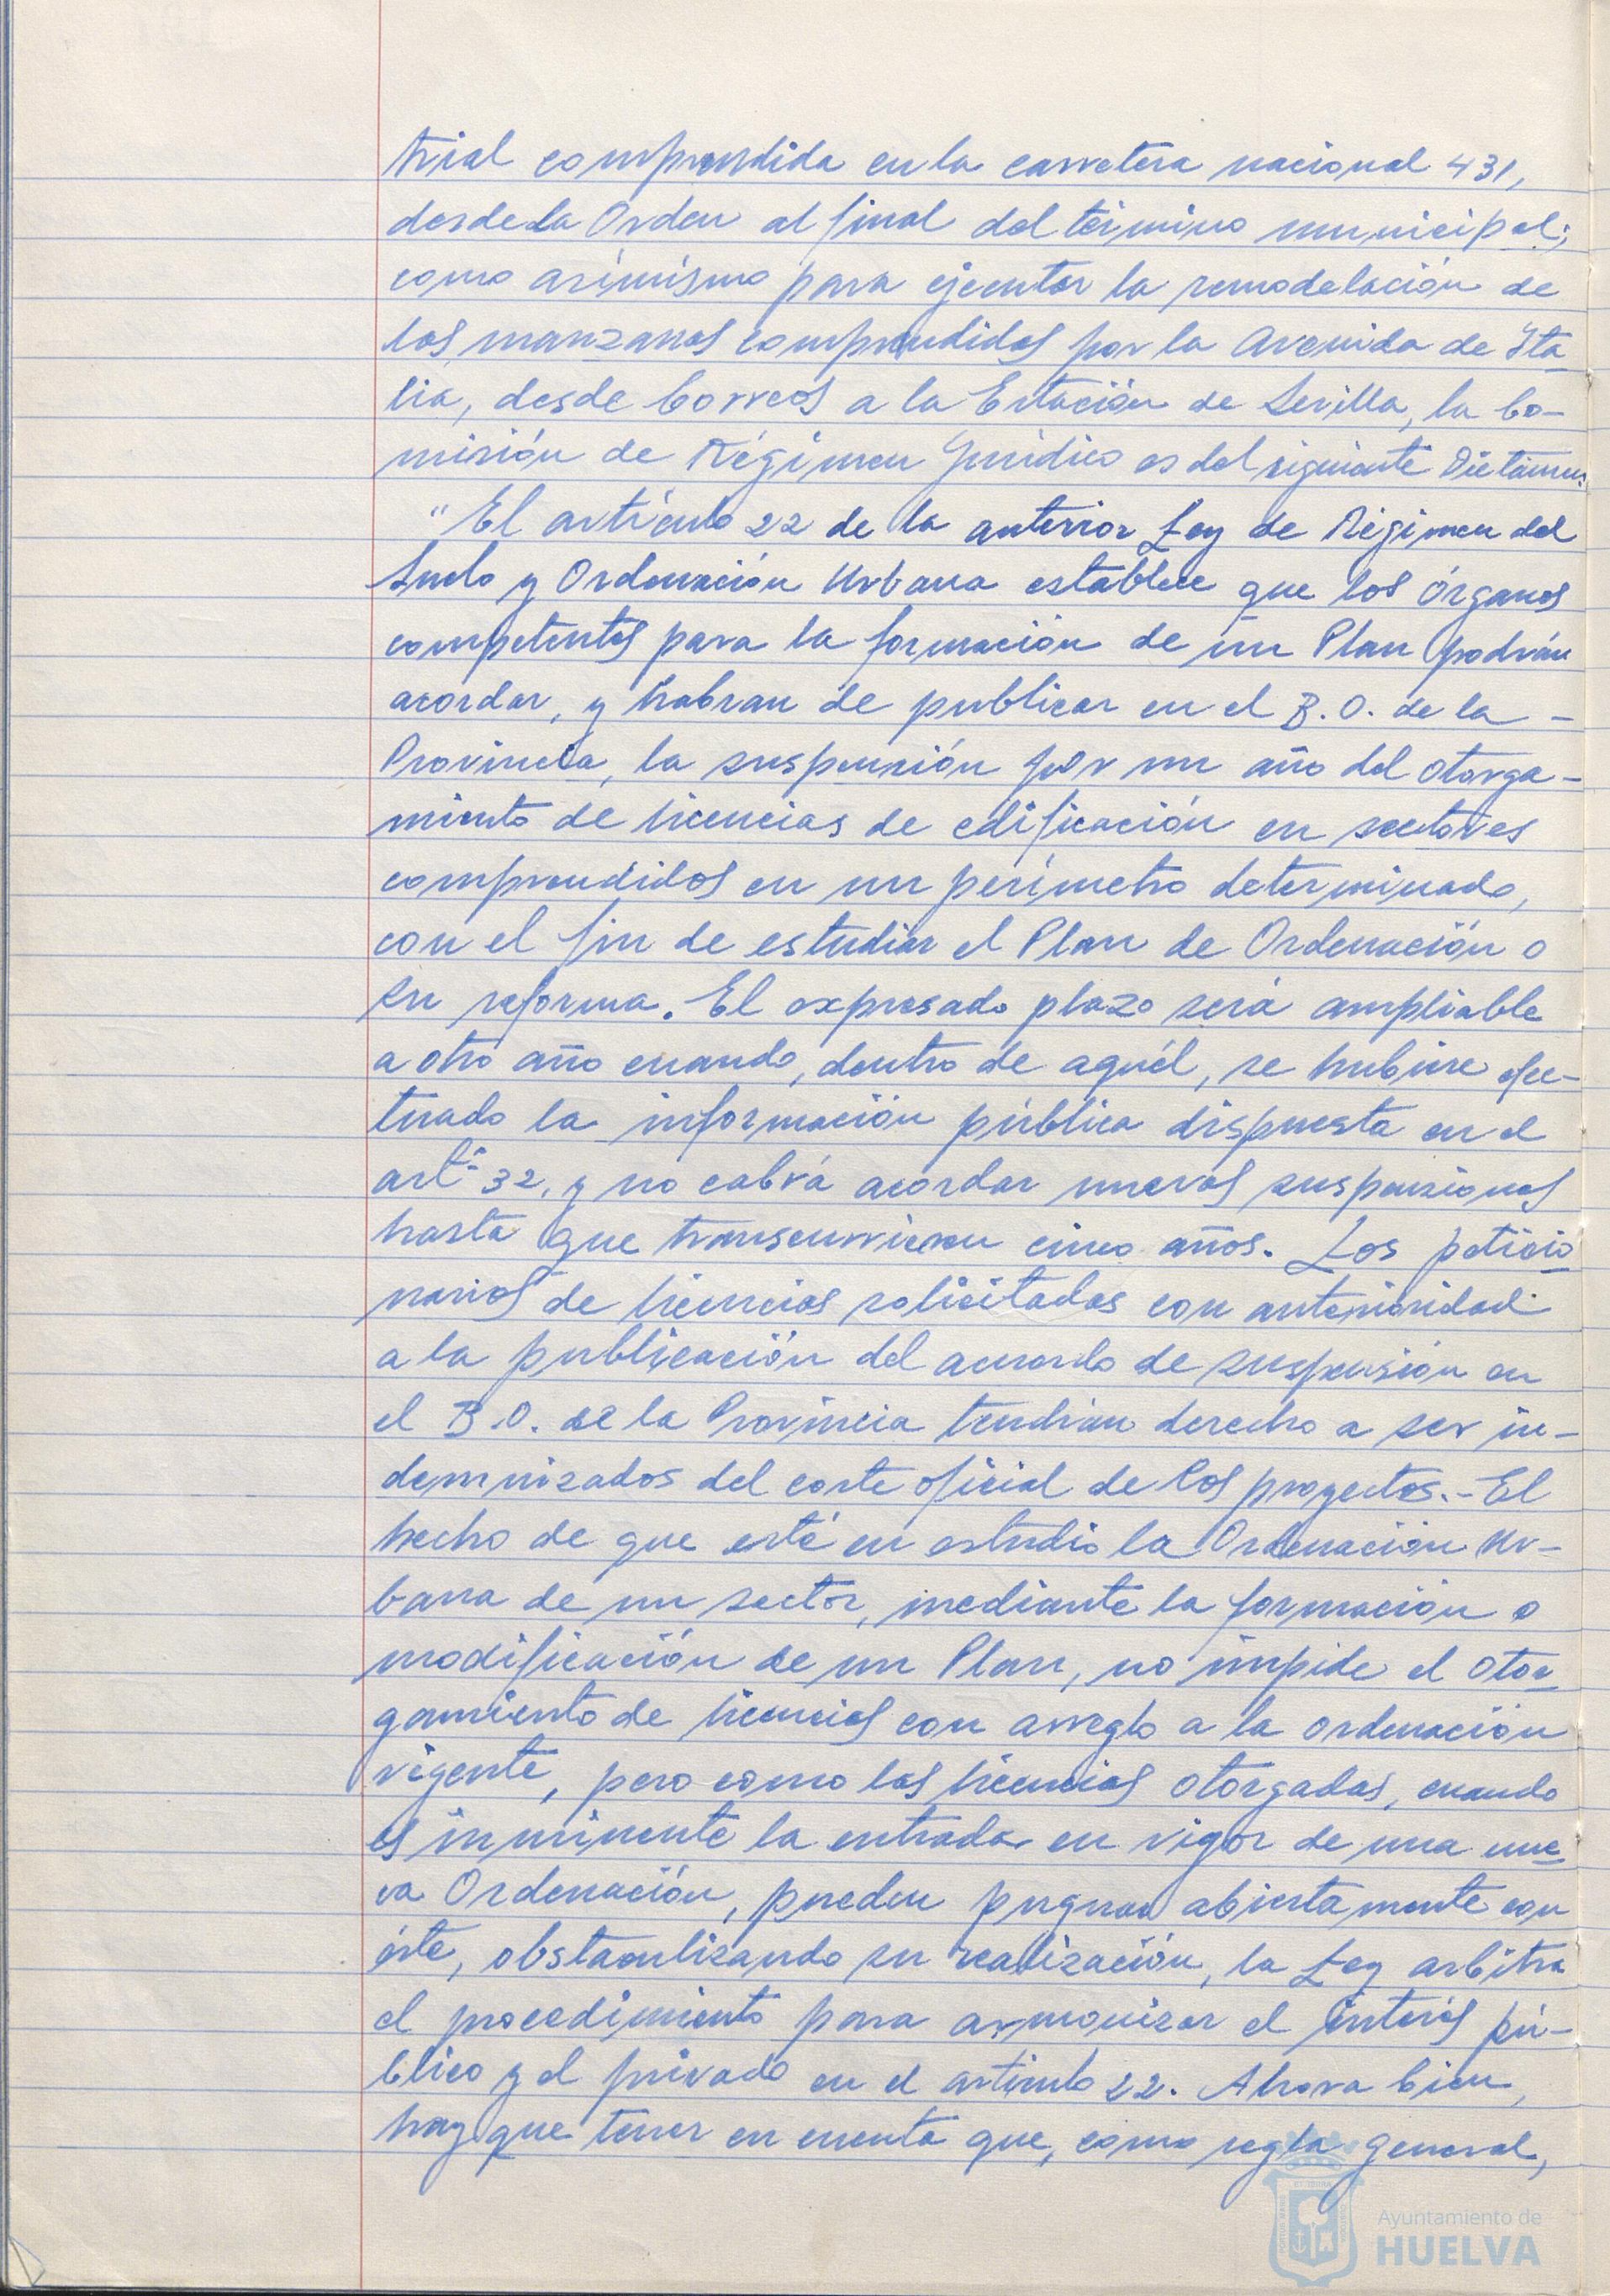 trial comprendida en la carretera nacional 431,
desde la Orden al final del término municipal;
como asímísmo para ejecutar la remodelación de
las manzanas comprendidas por la Avenida de Ita-
lia, desde Correos a la Estación de Sevilla, la Co-
misión de Régimen Jurídico es del siguiente Dictámen:
"El artículo 22 de la anterior Ley de Régimen del
Suelo y Ordenación Urbana establece que los órganos
competentes para la formación de un Plan podrán
acordar, y habran de publicar en el B.O. de la -
Provincia, la suspensión por un año del otorga-
miento de licencias de edificación en sectores
comprendidos en un perímetro determinado,
con el fin de estudiar el Plan de Ordenación o
su reforma. El expresado plazo será ampliable
a otro año cuando, dentro de aquél, se hubiere efec-
tuado la información pública dispuesta en el
artº 32, y no cabrá acordar nuevas suspensiones
hasta que transcurrieren cinco años. Los peticio-
narios de licencias solicitadas con anterioridad
a la publicación del acuerdo de suspensión en
el B.O. de la Provincia tendrán derecho a ser in-
demnizados del coste oficial de los proyectos.- El
hecho de que esté en estudio la Ordenación Ur-
bana de un sector, mediante la formación o
modificación de un Plan, no impide el otor-
gamiento de licencias con arreglo a la ordenación
vigente, pero como las licencias otorgadas, cuando
es inminente la entrada en vigor de una nue-
va Ordenación, pueden pugnar abiertamente con
ésta, obstaculizando su realización, la Ley arbitra
el procedimiento para armonizar el interés pú-
blico y el privado en el artículo 22. Ahora bien,
hay que tener en cuenta que, como regla general,
Ayuntamiento de
HUELVA